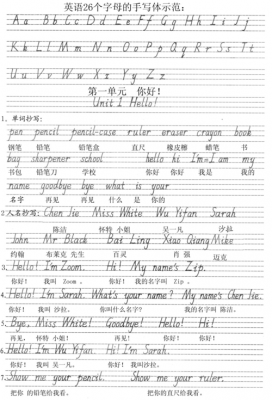 英语26个字母的手写体示范:
Aa Bb Cc Dd Ee Ff Gg Hh Ii Jj
Kk Ll Mm Nn Oo Pp Qq Rr Ss Tt
Uu Vv Ww Xx Yy Zz
第一单元 你好!
Unit 1 Hello!
1、单词抄写:
pen pencil pencil-case ruler eraser crayon book
钢笔 铅笔 铅笔盒 直尺 橡皮擦 蜡笔 书
bag sharpener school hello hi I'm=I am my
书包 铅笔刀 学校 你好 你好 我是 我的
name goodbye bye what is your
名字 再见 再见 什么 是 你的
2人名抄写: Chen Jie Miss White Wu Yifan Sarah
陈洁 怀特 小姐 吴一凡 沙拉
John Mr Black Bai Ling Xiao Qiang Mike
约翰 布莱克 先生 百灵 肖 强 迈克
3、Hello! I'm Zoom. Hi! My name's Zip.
你好! 我叫 Zoom 。 你好! 我的名字叫 Zip 。
4、Hello! I'm Sarah. What's your name? My name's Chen Jie.
你好! 我叫 沙拉。 你叫什么名字? 我的名字叫 陈洁。
5、Bye, Miss White! Goodbye! Hello! Hi!
再见, 怀特 小姐! 再见! 你好! 你好!
6、Hello! I'm Wu Yifan. Hi! I'm Sarah.
你好! 我叫 吴一凡。 你好! 我叫沙拉。
7、Show me your pencil. Show me your ruler.
把你 的铅笔给我看。 把你的直尺给我看。